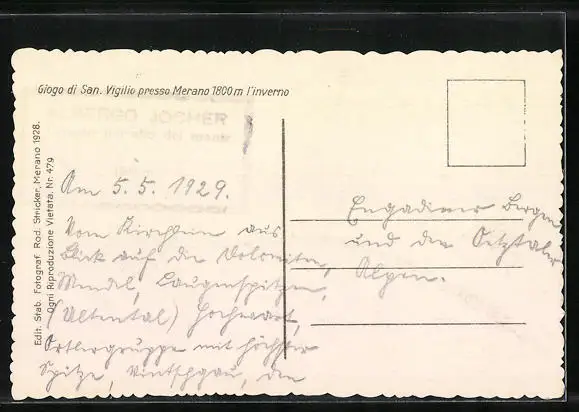 Giogo di San. Vigilio presso Merano 1800 m l'inverno
Edit. Stab. Fotograf. Rod. Stricker, Merano 1928.
Ogni Riproduzione Vietata. Nr. 479
ALBERGO JOCHER
Am 5. 5. 1929.
Vom Kirchlein aus
Blick auf die Dolomiten,
Mendel, Laugenspitzen,
(Ultental) Hochwart,
Ortlergruppe mit höchster
Spitze, Vintschgau, den
Engadiner Bergen
und den Oetztaler
Alpen.